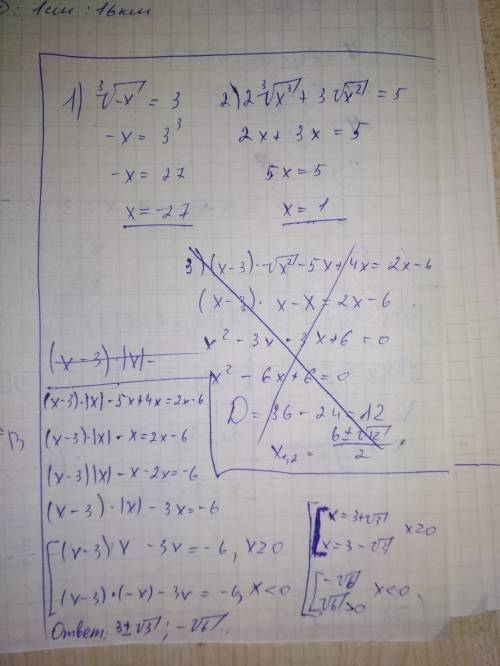 : 1см : 16км
1) ∛(-x) = 3
-x = 3³
-x = 27
x = -27
2) 2∛(x³) + 3√(x²) = 5
2x + 3x = 5
5x = 5
x = 1
3) (x-3)·√(x²) - 5x + 4x = 2x - 6
(x-3)· x - x = 2x - 6
x² - 3x - 3x + 6 = 0
x² - 6x + 6 = 0
D = 36 - 24 = 12
x₁,₂ = (6 ± √12)/2
(x-3)·|x| =
(x-3)·|x| - 5x + 4x = 2x - 6
(x-3)·|x| - x = 2x - 6
(x-3)|x| - x - 2x = -6
(x-3)·|x| - 3x = -6
[(x-3)·x - 3x = -6, x≥0
(x-3)·(-x) - 3x = -6, x<0
[x = 3+√3
x = 3-√3 x≥0
[-√6
√6>0 x<0.
Ответ: 3±√3; -√6.
В